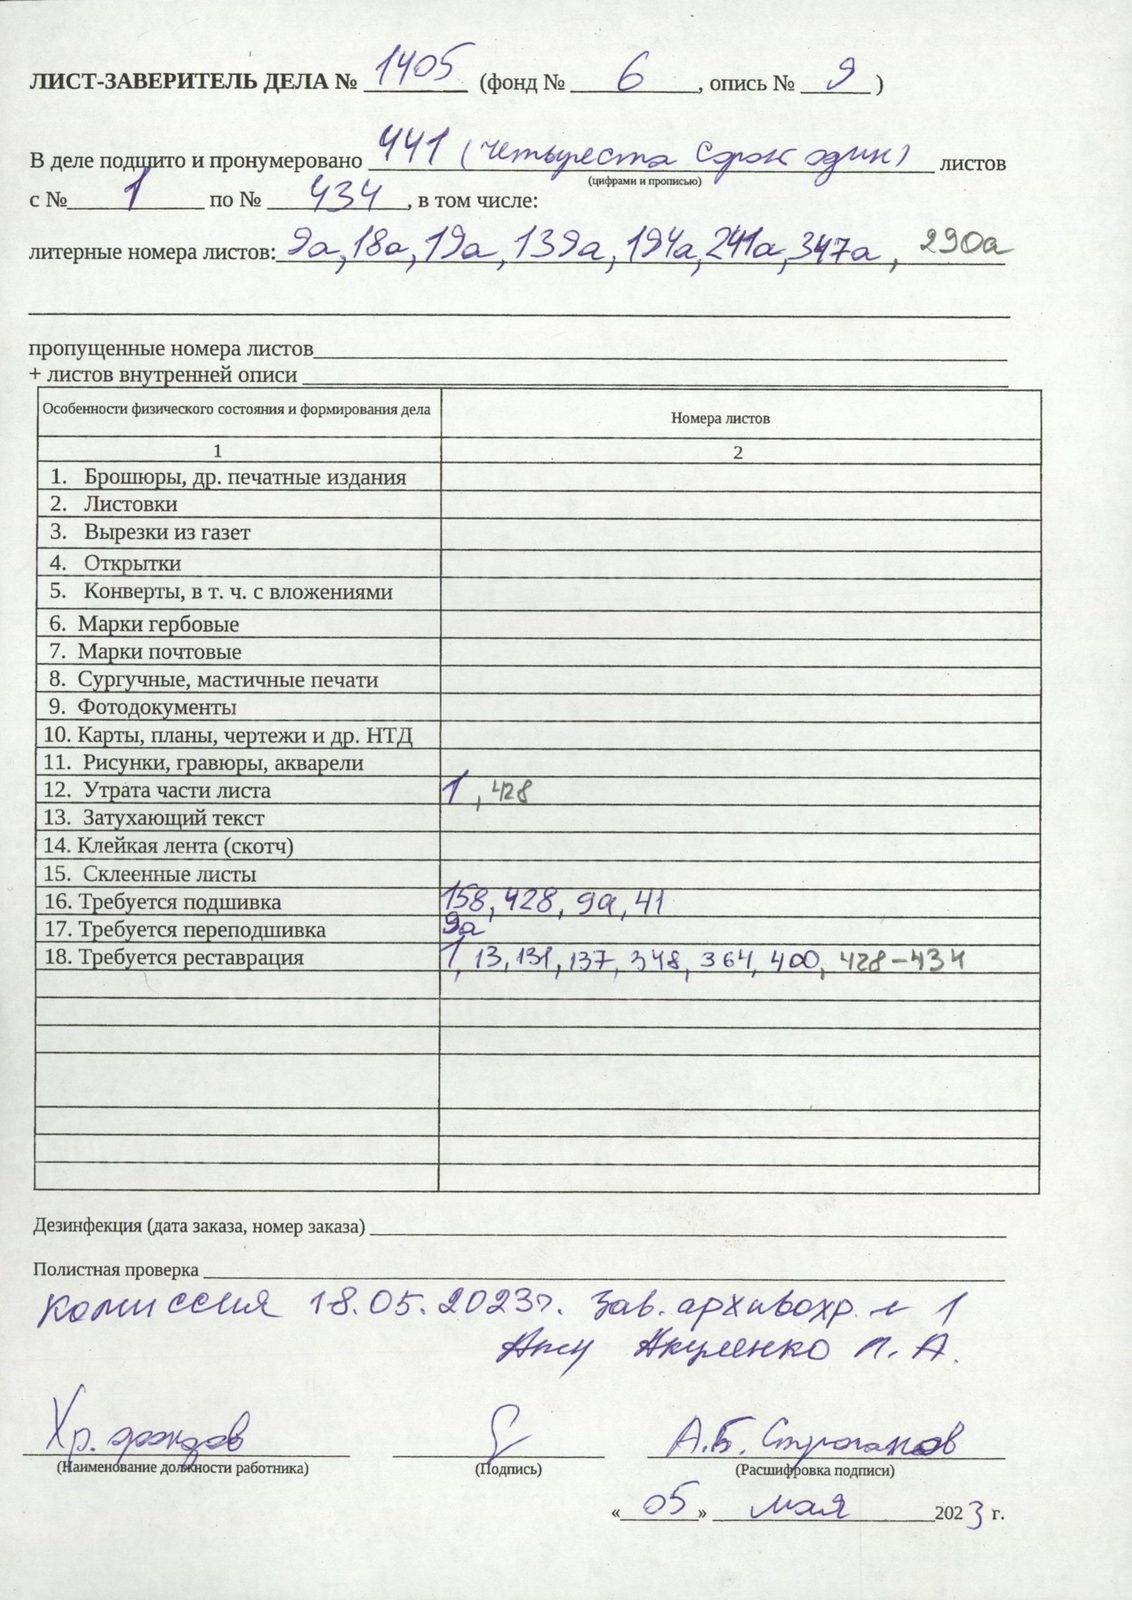 ЛИСТ-ЗАВЕРИТЕЛЬ ДЕЛА № 1405 (фонд № 6, опись № 9)
В деле подшито и пронумеровано 441 (четыреста сорок один) листов
(цифрами и прописью)
с № 1 по № 434, в том числе:
литерные номера листов: 9а, 18а, 19а, 139а, 194а, 241а, 347а, 290а
пропущенные номера листов
+ листов внутренней описи
Особенности физического состояния и формирования дела Номера листов
1 2
1. Брошюры, др. печатные издания
2. Листовки
3. Вырезки из газет
4. Открытки
5. Конверты, в т. ч. с вложениями
6. Марки гербовые
7. Марки почтовые
8. Сургучные, мастичные печати
9. Фотодокументы
10. Карты, планы, чертежи и др. НТД
11. Рисунки, гравюры, акварели
12. Утрата части листа 1, 428
13. Затухающий текст
14. Клейкая лента (скотч)
15. Склеенные листы
16. Требуется подшивка 158, 428, 9а, 41
17. Требуется переподшивка 9а
18. Требуется реставрация 1, 13, 131, 137, 348, 364, 400, 428-434
Дезинфекция (дата заказа, номер заказа)
Полистная проверка
комиссия 18.05.2023г. Зав. архивохр. 1
Акуленко Л. А.
Хр. фондов А.Б. Строганов
(Наименование должности работника) (Подпись) (Расшифровка подписи)
«05» мая 2023 г.